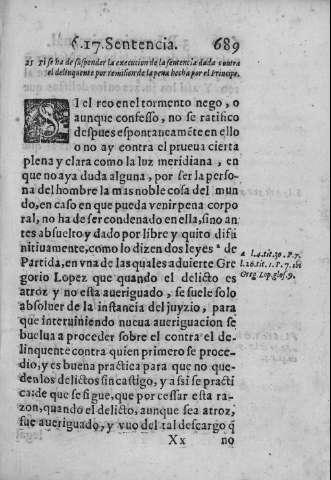 §. 17. Sentencia. 689
25 Si se ha de suspender la execucion de la sentencia dada contra
el delinquente por remision de la pena hecha por el Principe.
SI el reo en el tormento nego, o
aunque confesso, no se ratifico
despues espontaneamēte en ello
o no ay contra el prueua cierta
plena y clara como la luz meridiana, en
que no aya duda alguna, por ser la perso-
na del hombre la mas noble cosa del mun
do, en caso en que pueda venir pena corpo
ral, no ha de ser condenado en ella, sino an
tes absuelto y dado por libre y quito difi
nitiuamente, como lo dizen dos leyes ª de
Partida, en vna de las quales aduierte Gre
gorio Lopez que quando el delicto es
atroz y no esta aueriguado, se suele solo
absoluer de la instancia del juyzio, para
que interuiniendo nueua aueriguacion se
buelua a proceder sobre el contra el de-
linquente contra quien primero se proce-
dio, y es buena practica para que no que-
den los delictos sin castigo, y assi se practi
ca: de que se sigue, que por cessar esta ra-
zon, quando el delicto, aunque sea atroz,
fue aueriguado, y vuo del tal descargo q̄
Xx no
a l. 4. tit. 30. P. 7.
l. 26. tit. 1. P. 7. ibi
Greg. Lop. glos. 9.